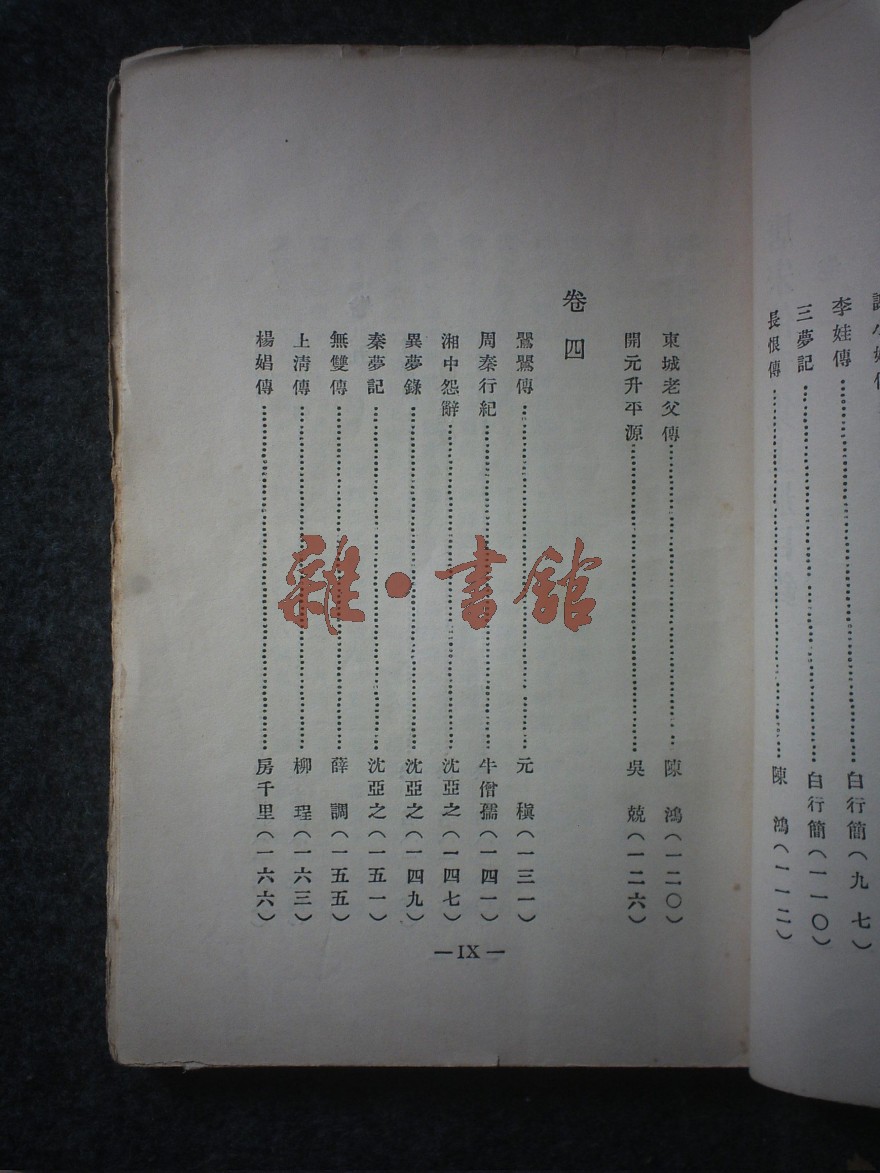 李娃傳……白行簡(九 七)
三夢記……白行簡(一一〇)
長恨傳……陳 鴻(一一二)
東城老父傳……陳 鴻(一二〇)
開元升平源……吳 兢(一二六)
卷四
鶯鶯傳……元 稹(一三一)
周秦行紀……牛僧孺(一四一)
湘中怨辭……沈亞之(一四七)
異夢錄……沈亞之(一四九)
秦夢記……沈亞之(一五一)
無雙傳……薛 調(一五五)
上清傳……柳 珵(一六三)
楊娼傳……房千里(一六六)
—IX—
雜·書館